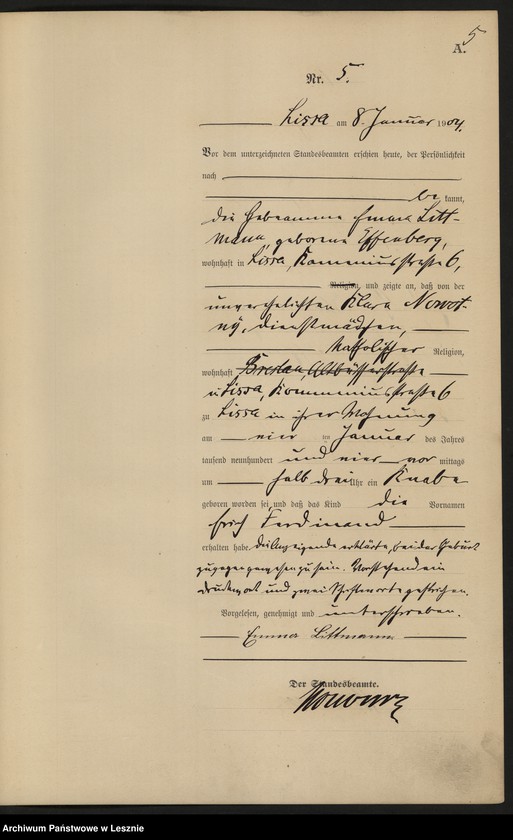 5
A.
Nr. 5.
Lissa am 8. Januar 1904.
Vor dem unterzeichneten Standesbeamten erschien heute, der Persönlichkeit
nach
be kannt,
die Hebeamme Emma Litt-
mann, geborene Effenberg,
wohnhaft in Lissa, Komeniusstraße 6,
Religion und zeigte an, daß von der
unverehelichten Klara Nowot-
ny, Dienstmädchen,
katholischer Religion,
wohnhaft Breslau, Altbüsserstraße
in Lissa, Kommeniusstraße 6
zu Lissa in ihrer Wohnung
am vier ten Januar des Jahres
tausend neunhundert und vier vor mittags
um halb drei Uhr ein Knabe
geboren worden sei und daß das Kind die Vornamen
Erich Ferdinand
erhalten habe. Die Anzeigende erklärte, bei der Geburt
zugegen gewesen zu sein. Vorstehend ein
Druckwort und zwei Schriftworte gestrichen.
Vorgelesen, genehmigt und unterschrieben.
Emma Littmann
Der Standesbeamte.
Archiwum Państwowe w Lesznie